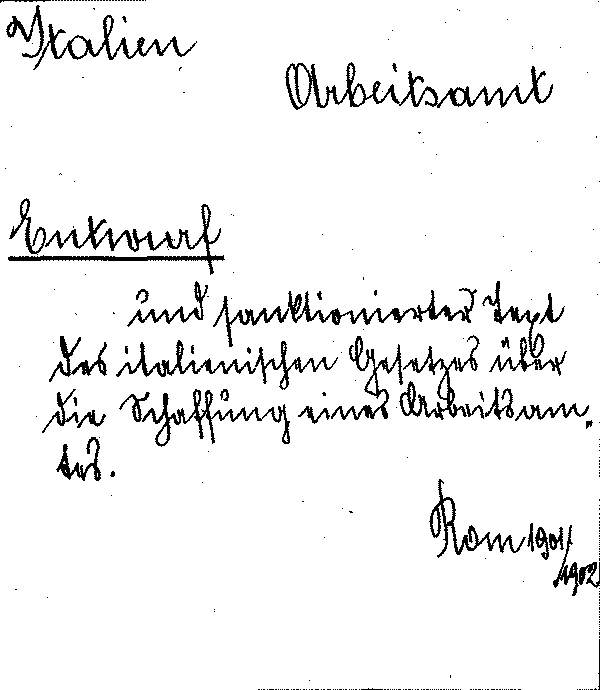 Italien
Arbeitsamt
Entwurf
und sanktionierter Text
des italienischen Gesetzes über
die Schaffung eines Arbeitsam„
tes.
Rom 1901/
1902